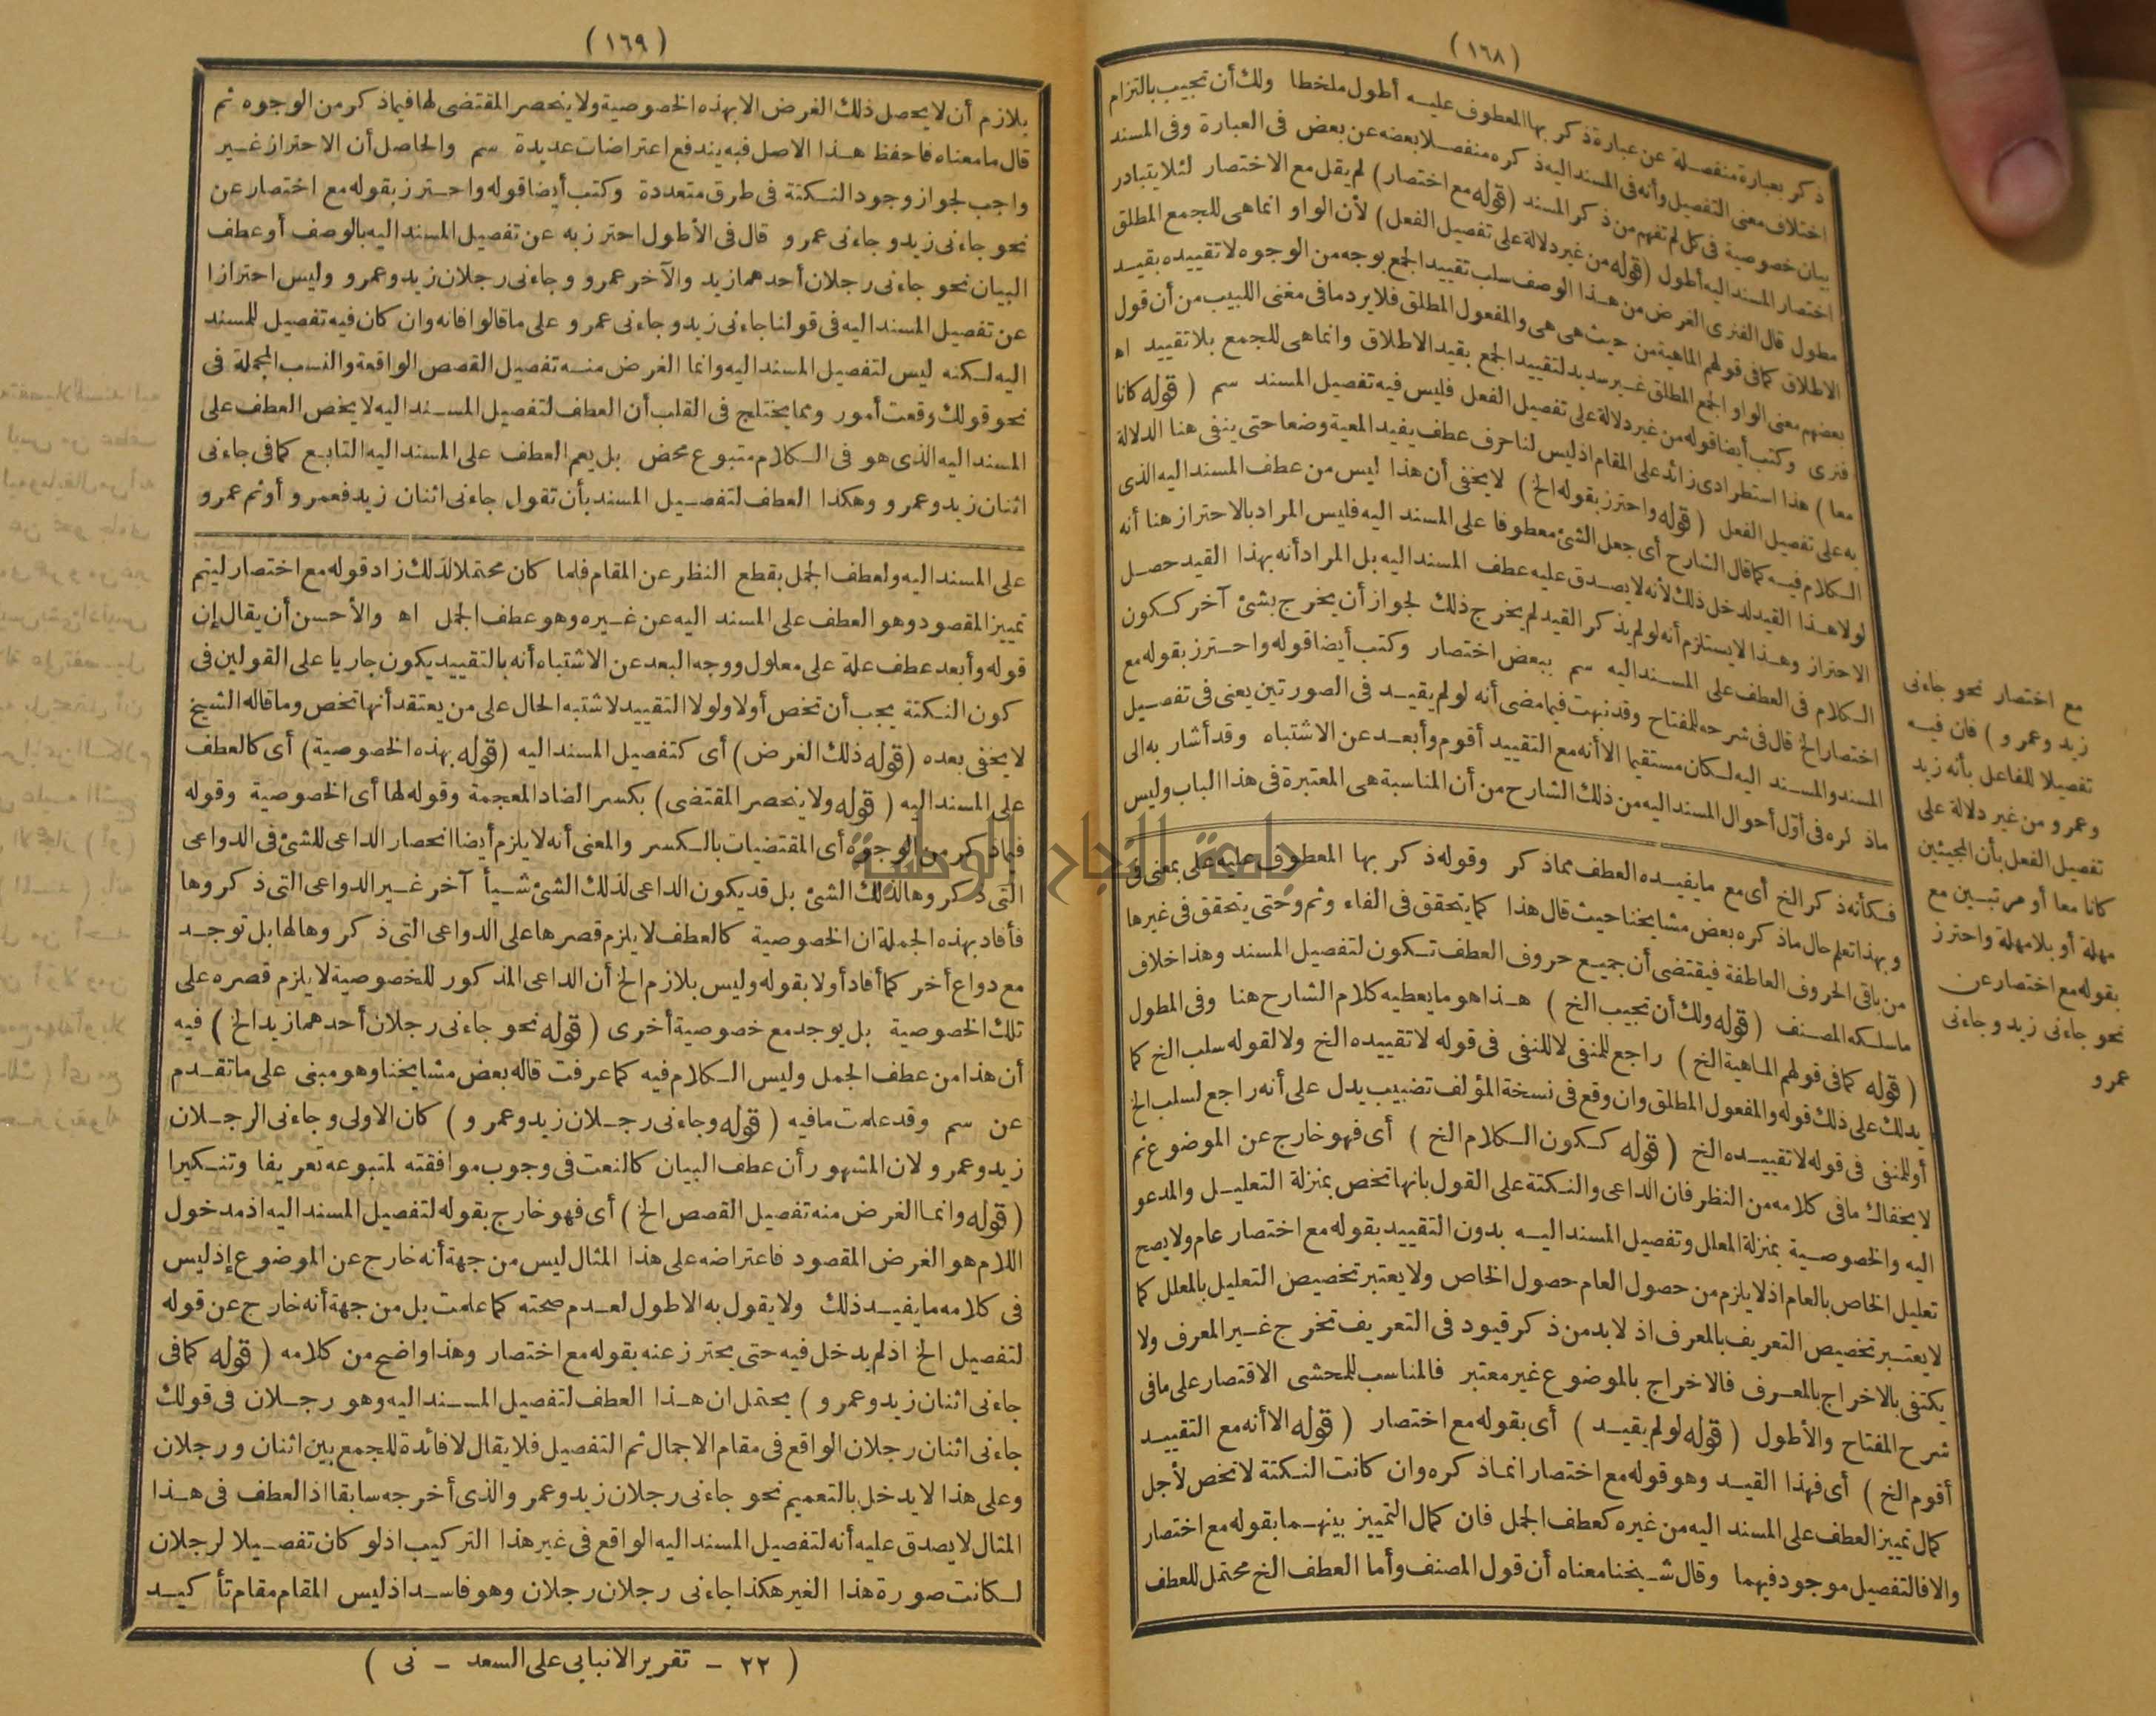 (١٦٨)
ذكر بعبارة منفصلة عن عبارة ذكر بها المعطوف عليه أطول ملخطا ولك أن تجيب بالتزام
اختلاف معنى التفصيل وأنه فى المسند اليه ذكره منفصلا بعضه عن بعض فى العبارة وفى المسند
بيان خصوصية فى كل لم تفهم من ذكر المسند (قوله مع اختصار) لم يقل مع الاختصار لئلا يتبادر
اختصار المسند اليه أطول (قوله من غير دلالة على تفصيل الفعل) لأن الواو انما هى للجمع المطلق
مطول قال الفنرى الغرض من هذا الوصف سلب تقييد الجمع بوجه من الوجوه لا تقييده بقيد
الاطلاق كما فى قولهم الماهية من حيث هى هى والمفعول المطلق فلا يرد ما فى مغنى اللبيب من أن قول
بعضهم معنى الواو الجمع المطلق غير سديد لتقييد الجمع بقيد الاطلاق وانما هى للجمع بلا تقييد اه
فنرى وكتب أيضا قوله من غير دلالة على تفصيل الفعل فليس فيه تفصيل المسند سم (قوله كانا
معا) هذا استطرادى زائد على المقام اذ ليس لنا حرف عطف يفيد المعية وضعا حتى ينفى هنا الدلالة
به على تفصيل الفعل (قوله واحترز بقوله الخ) لا يخفى أن هذا ليس من عطف المسند اليه الذى
الكلام فيه كما قال الشارح أى جعل الشئ معطوفا على المسند اليه فليس المراد بالاحتراز هنا أنه
لولا هذا القيد لدخل ذلك لأنه لا يصدق عليه عطف المسند اليه بل المراد أنه بهذا القيد حصل
الاحتراز وهذا لا يستلزم أنه لو لم يذكر القيد لم يخرج ذلك لجواز أن يخرج بشئ آخر ككون
الكلام فى العطف على المسند اليه سم ببعض اختصار وكتب أيضا قوله واحترز بقوله مع
اختصار الخ قال فى شرحه للمفتاح وقد نبهت فيما مضى أنه لو لم يقيد فى الصورتين يعنى فى تفصيل
المسند والمسند اليه لكان مستقيما الا أنه مع التقييد أقوم وأبعد عن الاشتباه وقد أشار به الى
ماذكره فى أول أحوال المسند اليه من ذلك الشارح من أن المناسبة هى المعتبرة فى هذا الباب وليس
فكأنه ذكر الخ أى مع ما يفيده العطف بماذكر وقوله ذكر بها المعطوف عليه على بمعنى فى
وبهذا تعلم حال ماذكره بعض مشايخنا حيث قال هذا كما يتحقق فى الفاء وثم وحتى يتحقق فى غيرها
من باقى الحروف العاطفة فيقتضى أن جميع حروف العطف تكون لتفصيل المسند وهذا خلاف
ما سلكه المصنف (قوله ولك أن تجيب الخ) هذا هو ما يعطيه كلام الشارح هنا وفى المطول
(قوله كما فى قولهم الماهية الخ) راجع للمنفى لا للنفى فى قوله لا تقييده الخ ولا لقوله سلب الخ كما
يدلك على ذلك قوله والمفعول المطلق وان وقع فى نسخة المؤلف تضبيب يدل على أنه راجع لسلب الخ
أو للنفى فى قوله لا تقييده الخ (قوله ككون الكلام الخ) أى فهو خارج عن الموضوع ثم
لا يخفاك ما فى كلامه من النظر فان الداعى والنكتة على القول بانها تخص بمنزلة التعليل والمدعو
اليه والخصوصية بمنزلة المعلل وتفصيل المسند اليه بدون التقييد بقوله مع اختصار عام ولا يصح
تعليل الخاص بالعام اذ لا يلزم من حصول العام حصول الخاص ولا يعتبر تخصيص التعليل بالمعلل كما
لا يعتبر تخصيص التعريف بالمعرف اذ لابد من ذكر قيود فى التعريف تخرج غير المعرف ولا
يكتفى بالاخراج بالمعرف فالاخراج بالموضوع غير معتبر فالمناسب للمحشى الاقتصار على ما فى
شرح المفتاح والأطول (قوله لو لم يقيد) أى بقوله مع اختصار (قوله الا أنه مع التقييد
أقوم الخ) أى فهذا القيد وهو قوله مع اختصار انماذكره وان كانت النكتة لا تخص لأجل
كمال تمييز العطف على المسند اليه من غيره كعطف الجمل فان كمال التمييز بينهما بقوله مع اختصار
والا فالتفصيل موجود فيهما وقال شيخنا معناه أن قول المصنف وأما العطف الخ محتمل للعطف
مع اختصار نحو جاءنى
زيد وعمرو) فان فيه
تفصيلا للفاعل بأنه زيد
وعمرو من غير دلالة على
تفصيل الفعل بأن المجيئين
كانا معا أو مرتبين مع
مهلة أو بلا مهلة واحترز
بقوله مع اختصار عن
نحو جاءنى زيد وجاءنى
عمرو
(١٦٩)
بلازم أن لا يحصل ذلك الغرض الا بهذه الخصوصية ولا ينحصر المقتضى لها فيماذكر من الوجوه ثم
قال ما معناه فاحفظ هذا الاصل فبه يندفع اعتراضات عديدة سم والحاصل أن الاحتراز غير
واجب لجواز وجود النكتة فى طرق متعددة وكتب أيضا قوله واحترز بقوله مع اختصار عن
نحو جاءنى زيد وجاءنى عمرو قال فى الأطول احترز به عن تفصيل المسند اليه بالوصف أو عطف
البيان نحو جاءنى رجلان أحدهما زيد والآخر عمرو وجاءنى رجلان زيد وعمرو وليس احترازا
عن تفصيل المسند اليه فى قولنا جاءنى زيد وجاءنى عمرو على ما قالوا فانه وان كان فيه تفصيل للمسند
اليه لكنه ليس لتفصيل المسند اليه وانما الغرض منه تفصيل القصص الواقعة والنسب المجملة فى
نحو قولك وقعت أمور ومما يختلج فى القلب أن العطف لتفصيل المسند اليه لا يخص العطف على
المسند اليه الذى هو فى الكلام متبوع محض بل يعم العطف على المسند اليه التابع كما فى جاءنى
اثنان زيد وعمرو وهكذا العطف لتفصيل المسند بأن تقول جاءنى اثنان زيد فعمرو أو ثم عمرو
على المسند اليه ولعطف الجمل بقطع النظر عن المقام فلما كان محتملا لذلك زاد قوله مع اختصار ليتم
تمييز المقصود وهو العطف على المسند اليه عن غيره وهو عطف الجمل اه والأحسن أن يقال إن
قوله وأبعد عطف علة على معلول ووجه البعد عن الاشتباه أنه بالتقييد يكون جاريا على القولين فى
كون النكتة يجب أن تخص أولا ولولا التقييد لاشتبه الحال على من يعتقد أنها تخص وما قاله الشيخ
لا يخفى بعده (قوله ذلك الغرض) أى كتفصيل المسند اليه (قوله بهذه الخصوصية) أى كالعطف
على المسند اليه (قوله ولا ينحصر المقتضى) بكسر الضاد المعجمة وقوله لها أى الخصوصية وقوله
فيماذكر من الوجوه أى المقتضيات بالكسر والمعنى أنه لا يلزم أيضا انحصار الداعى للشئ فى الدواعى
التى ذكروها لذلك الشئ بل قد يكون الداعى لذلك الشئ شيأ آخر غير الدواعى التى ذكروها
فأفاد بهذه الجملة ان الخصوصية كالعطف لا يلزم قصرها على الدواعى التى ذكروها لها بل توجد
مع دواع أخر كما أفاد أولا بقوله وليس بلازم الخ أن الداعى المذكور للخصوصية لا يلزم قصره على
تلك الخصوصية بل يوجد مع خصوصية أخرى (قوله نحو جاءنى رجلان أحدهما زيد الخ) فيه
أن هذا من عطف الجمل وليس الكلام فيه كما عرفت قاله بعض مشايخنا وهو مبنى على ما تقدم
عن سم وقد علمت ما فيه (قوله وجاءنى رجلان زيد وعمرو) كان الاولى وجاءنى الرجلان
زيد وعمرو لان المشهور أن عطف البيان كالنعت فى وجوب موافقته لمتبوعه تعريفا وتنكيرا
(قوله وانما الغرض منه تفصيل القصص الخ) أى فهو خارج بقوله لتفصيل المسند اليه اذ مدخول
اللام هو الغرض المقصود فاعتراضه على هذا المثال ليس من جهة أنه خارج عن الموضوع إذ ليس
فى كلامه ما يفيد ذلك ولا يقول به الاطول لعدم صحته كما علمت بل من جهة أنه خارج عن قوله
لتفصيل الخ اذ لم يدخل فيه حتى يحترز عنه بقوله مع اختصار وهذا واضح من كلامه (قوله كما فى
جاءنى اثنان زيد وعمرو) يحتمل ان هذا العطف لتفصيل المسند اليه وهو رجلان فى قولك
جاءنى اثنان رجلان الواقع فى مقام الاجمال ثم التفصيل فلا يقال لا فائدة للجمع بين اثنان ورجلان
وعلى هذا لا يدخل بالتعميم نحو جاءنى رجلان زيد وعمر والذى أخرجه سابقا اذ العطف فى هذا
المثال لا يصدق عليه أنه لتفصيل المسند اليه الواقع فى غير هذا التركيب اذ لو كان تفصيلا لرجلان
لكانت صورة هذا الغير هكذا جاءنى رجلان رجلان وهو فاسد اذ ليس المقام مقام تأكيد
(٢٢ - تقرير الانبابى على السعد - نى)
جامعة النجاح الوطنية